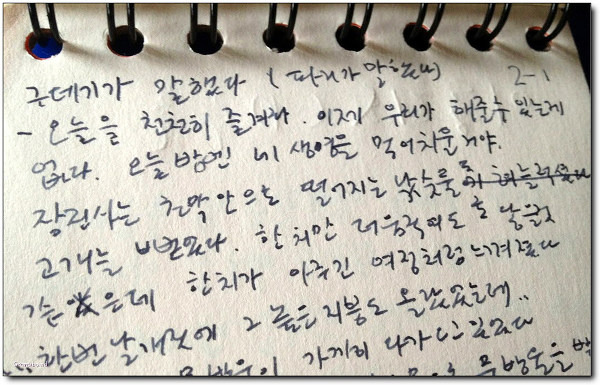 구데기가 말했다 (파리가 말했나) 2-1
- 오늘을 천천히 즐겨라. 이제 우리가 해줄수 있는게
없다. 오늘 밤엔 네 생명을 먹어치울거야.
장의사는 천막안으로 떨어지는 낚숫물
고개를 내밀었다. 한치만 더움직여도 날을것
같은데 한치가 아주긴 여정처럼 느껴졌다
한번 날개짓에 그 높은 지붕도 올랐었는데..
가까이 다가